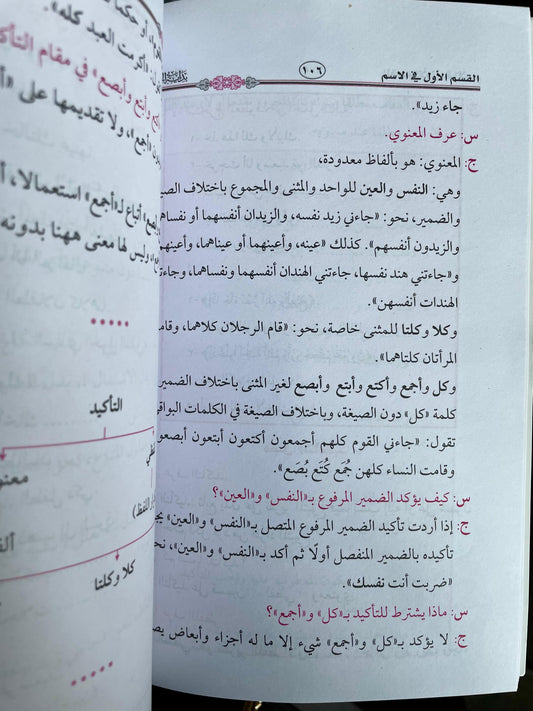 القسم الأول في الاسم
١٠٦
جاء زيد».
س: عرف المعنوي.
ج: المعنوي: هو بألفاظ معدودة،
وهي: النفس والعين للواحد والمثنى والمجموع باختلاف
والضمير، نحو: «جاءني زيد نفسه، والزيدان أنفسهما أو
والزيدون أنفسهم». كذلك «عينه، وأعينهما أو عيناهما،
و«جاءتني هند نفسها، جاءتني الهندان أنفسهما ونفساهما،
الهندات أنفسهن».
وكلا وكلتا للمثنى خاصة، نحو: «قام الرجلان كلاهما،
المرأتان كلتاهما».
وكل وأجمع وأكتع وأبتع وأبصع لغير المثنى باختلاف الضمير
كلمة «كل» دون الصيغة، وباختلاف الصيغة في الكلمات
تقول: «جاءني القوم كلهم أجمعون أكتعون أبتعون
وقامت النساء كلهن جُمَع كُتَع بُصَع».
س: كيف يؤكد الضمير المرفوع بـ«النفس» و«العين»؟
ج: إذا أردت تأكيد الضمير المرفوع المتصل بـ«النفس» و«العين»
تأكيده بالضمير المنفصل أولًا ثم أكد بـ«النفس» و«العين»،
«ضربت أنت نفسك».
س: ماذا يشترط للتأكيد بـ«كل» و«أجمع»؟
ج: لا يؤكد بـ«كل» و«أجمع» شيء إلا ما له أجزاء وأبعاض
أو
«أكرمت العبد كله».
وأبتع وأبصع» في مقام
«أجمع»، ولا تقديمها على
أتباع لـ«أجمع» استعمالا،
وليس لها معنى ههنا بدونه
التأكيد
كلا وكلتا